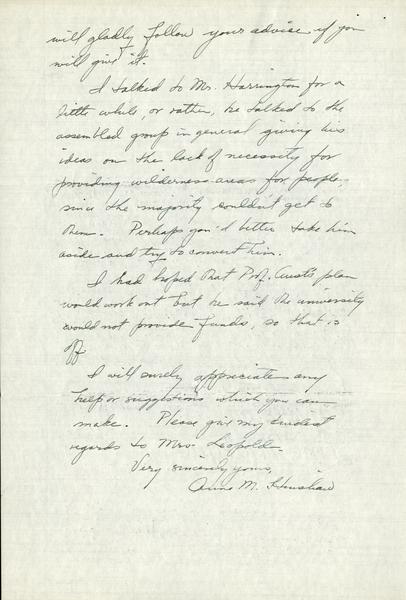 will gladly follow your advise if you
will give it.
I talked to Mr. Harrington for a
little while, or rather, he talked to the
assembled group in general giving his
ideas on the lack of necessity for
providing wilderness areas for people,
since the majority couldn't get to
them. Perhaps you'd better take him
aside and try to convert him.
I had hoped that Prof. Aust's plan
would work out but he said the university
would not provide funds, so that is
off
I will surely appreciate any
help or suggestions which you can
make. Please give my kindest
regards to Mrs. Leopold.
Very sincerely yours,
Anne M. Henshaw